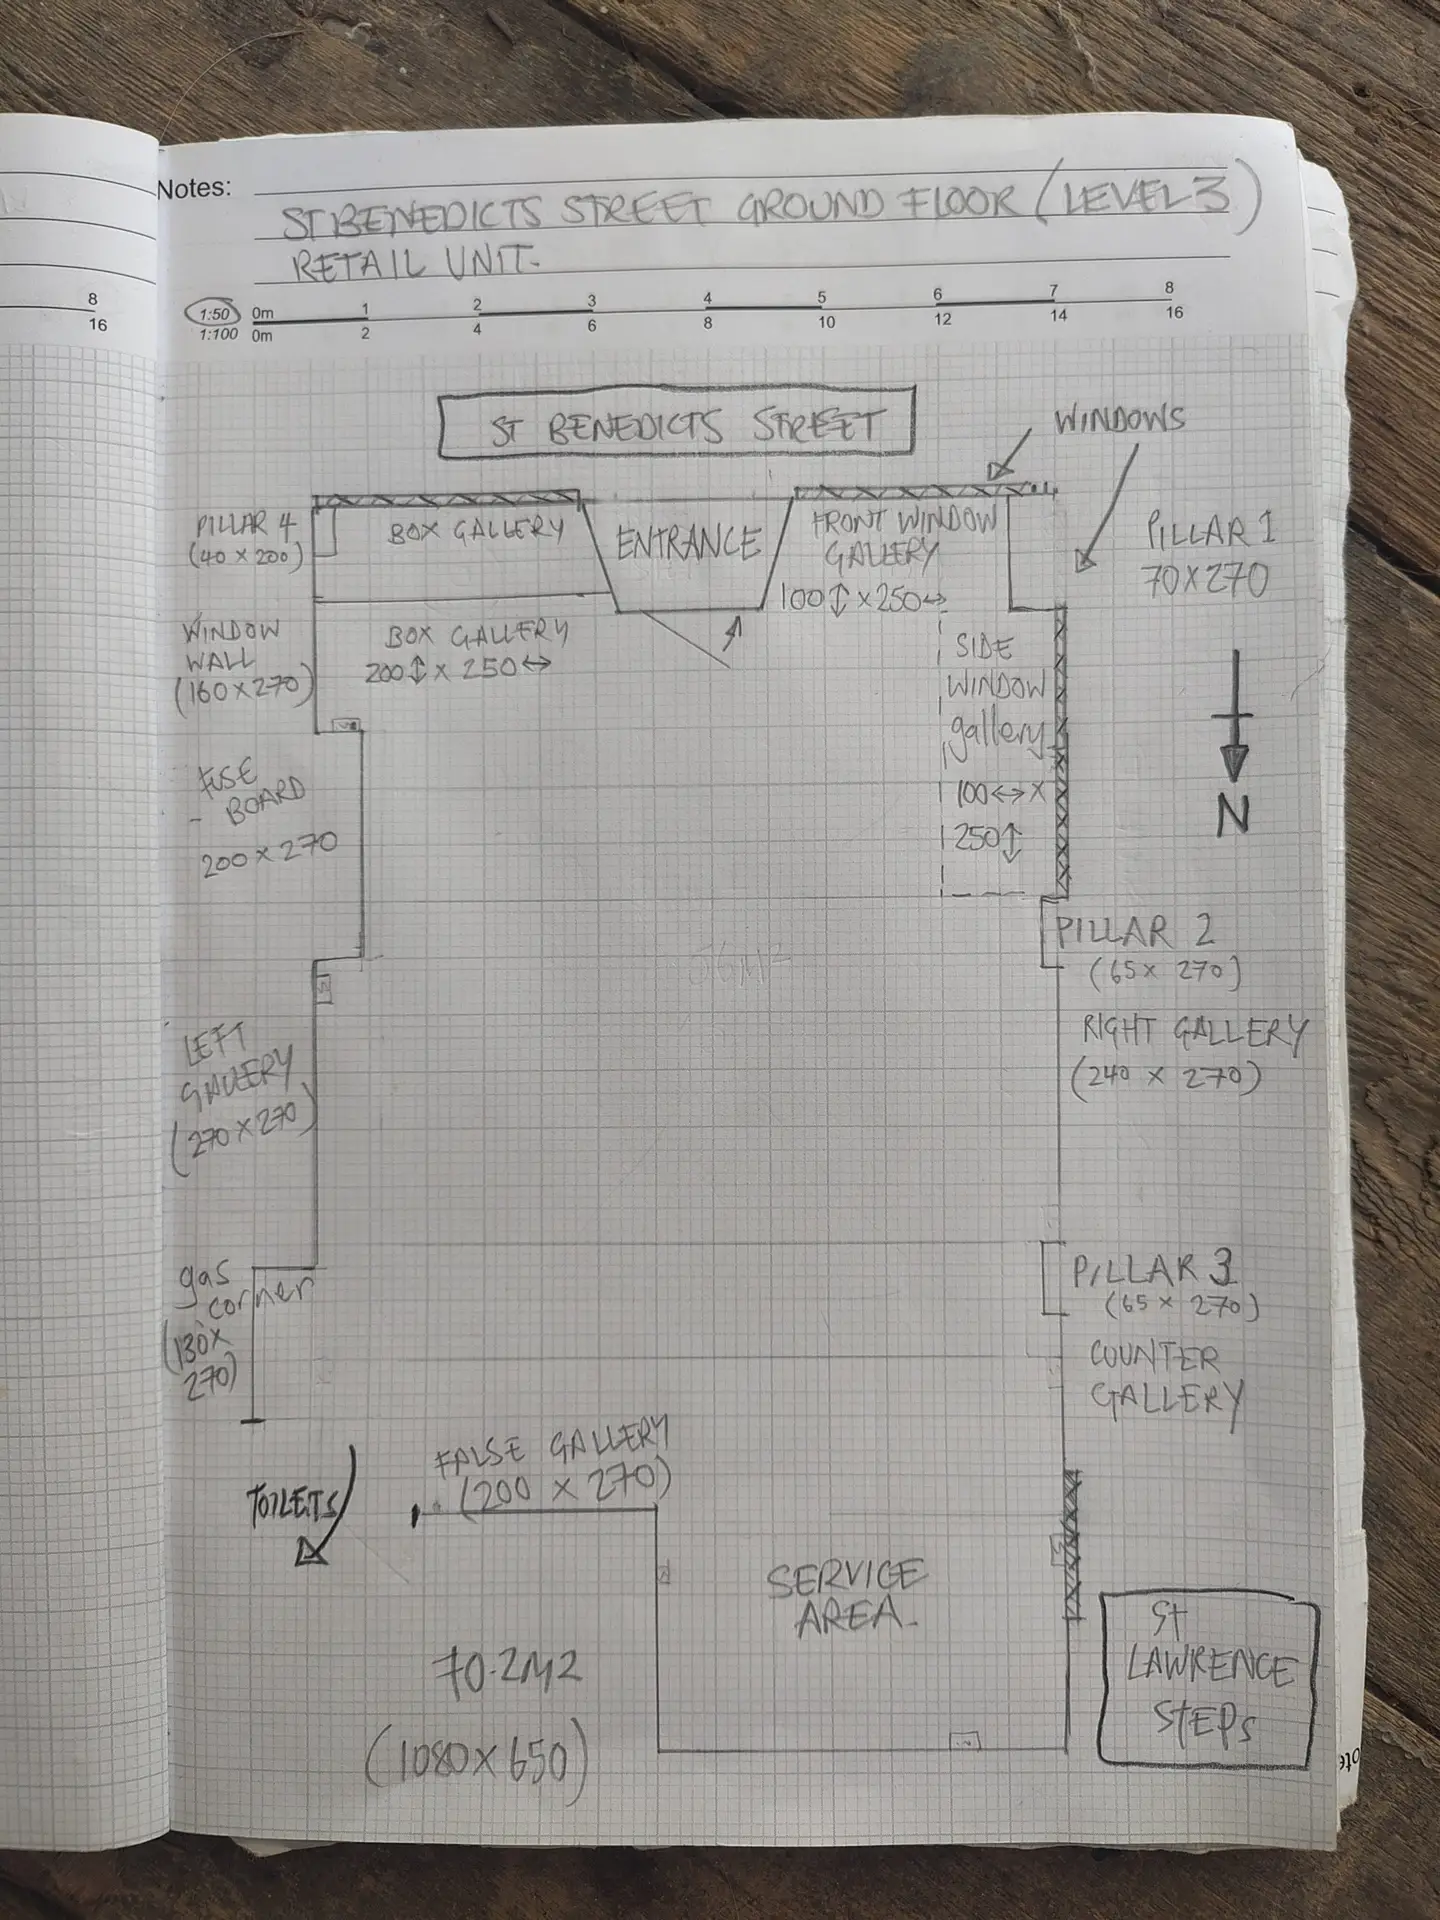 Notes:
ST BENEDICTS STREET GROUND FLOOR (LEVEL 3)
RETAIL UNIT.
8
16
1:50 0m 1 2 3 4 5 6 7 8
1:100 0m 2 4 6 8 10 12 14 16
ST BENEDICTS STREET
WINDOWS
PILLAR 4
(40 x 200)
BOX GALLERY
ENTRANCE
FRONT WINDOW
GALLERY
100↕ x 250↔
PILLAR 1
70 x 270
WINDOW
WALL
(160 x 270)
BOX GALLERY
200↕ x 250↔
SIDE
WINDOW
gallery
100↔ x
250↕
N
FUSE
- BOARD
200 x 270
PILLAR 2
(65 x 270)
56M2
RIGHT GALLERY
(240 x 270)
LEFT
GALLERY
(270 x 270)
gas
corner
(130 x
270)
PILLAR 3
(65 x 270)
COUNTER
GALLERY
FALSE GALLERY
(200 x 270)
TOILETS
SERVICE
AREA-
70.2M2
(1080 x 650)
St
LAWRENCE
STEPS